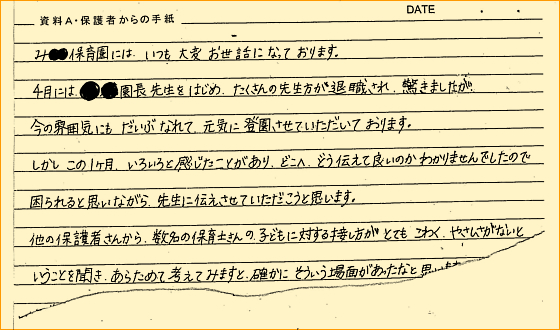 DATE ・ ・
資料A・保護者からの手紙
み●●保育園には、いつも大変お世話になっております。
4月には、●●園長先生をはじめ、たくさんの先生方が退職され、驚きましたが
今の雰囲気にもだいぶなれて、元気に登園させていただいております。
しかしこの1ヶ月、いろいろと感じたことがあり、どこへ、どう伝えて良いのかわかりませんでしたので
困られると思いながら、先生に伝えさせていただこうと思います。
他の保護者さんから、数名の保育士さんの、子どもに対する接し方がとてもこわく、やさしさがないと
いうことを聞き、あらためて考えてみますと、確かにそういう場面があったなと思い